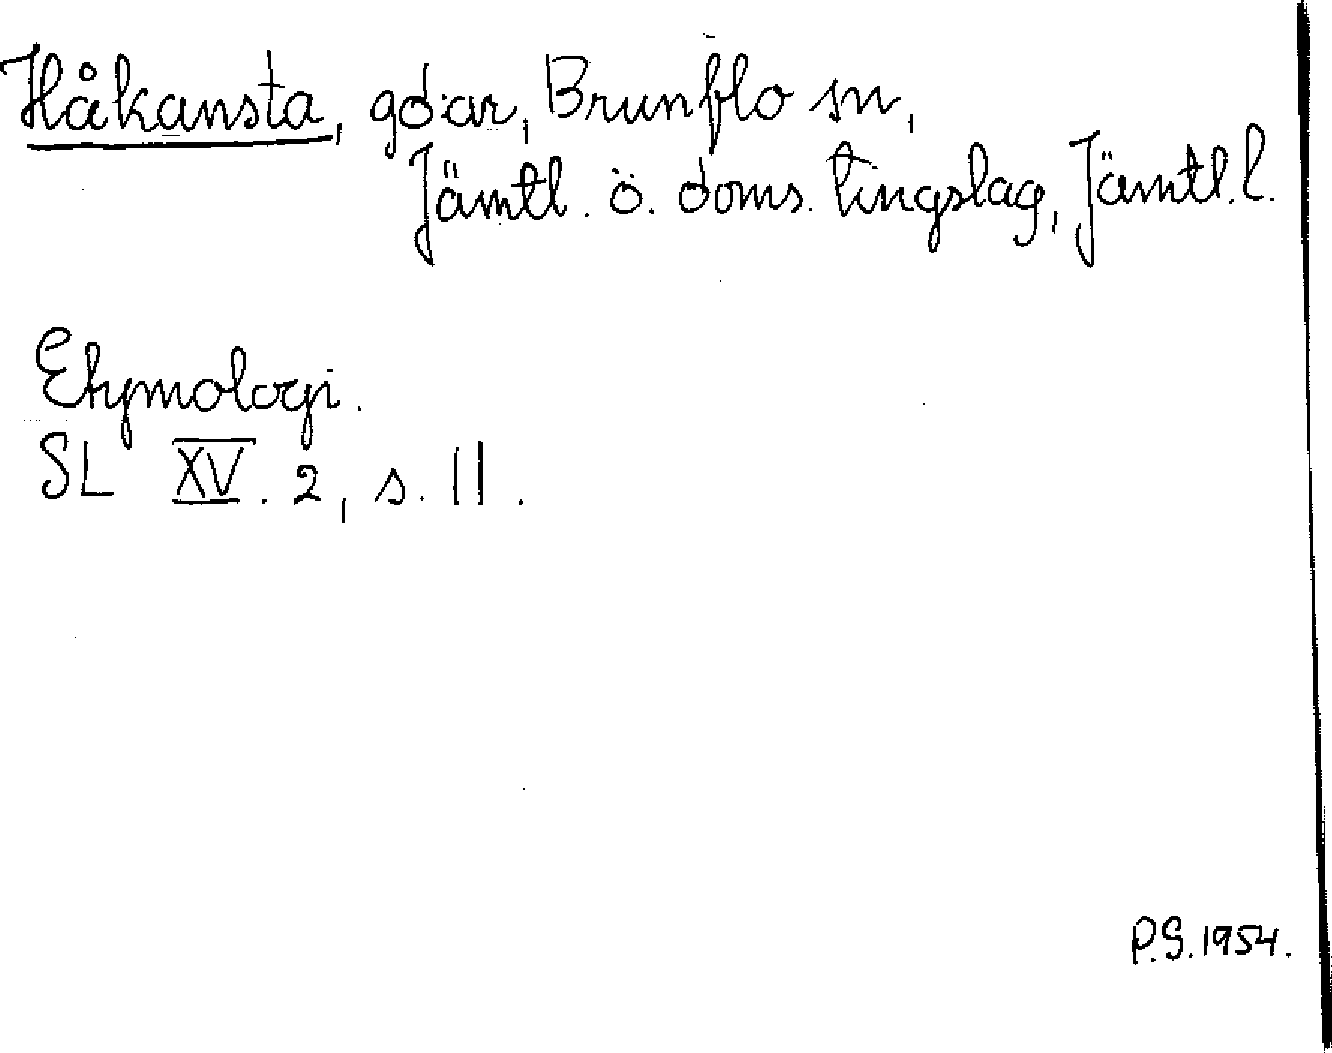 Håkansta, gd:ar, Brunflo sn,
Jämtl. ö. doms. tingslag, Jämtl. l.
Etymologi.
SL XV. 2, s. 11.
P.S. 1954.